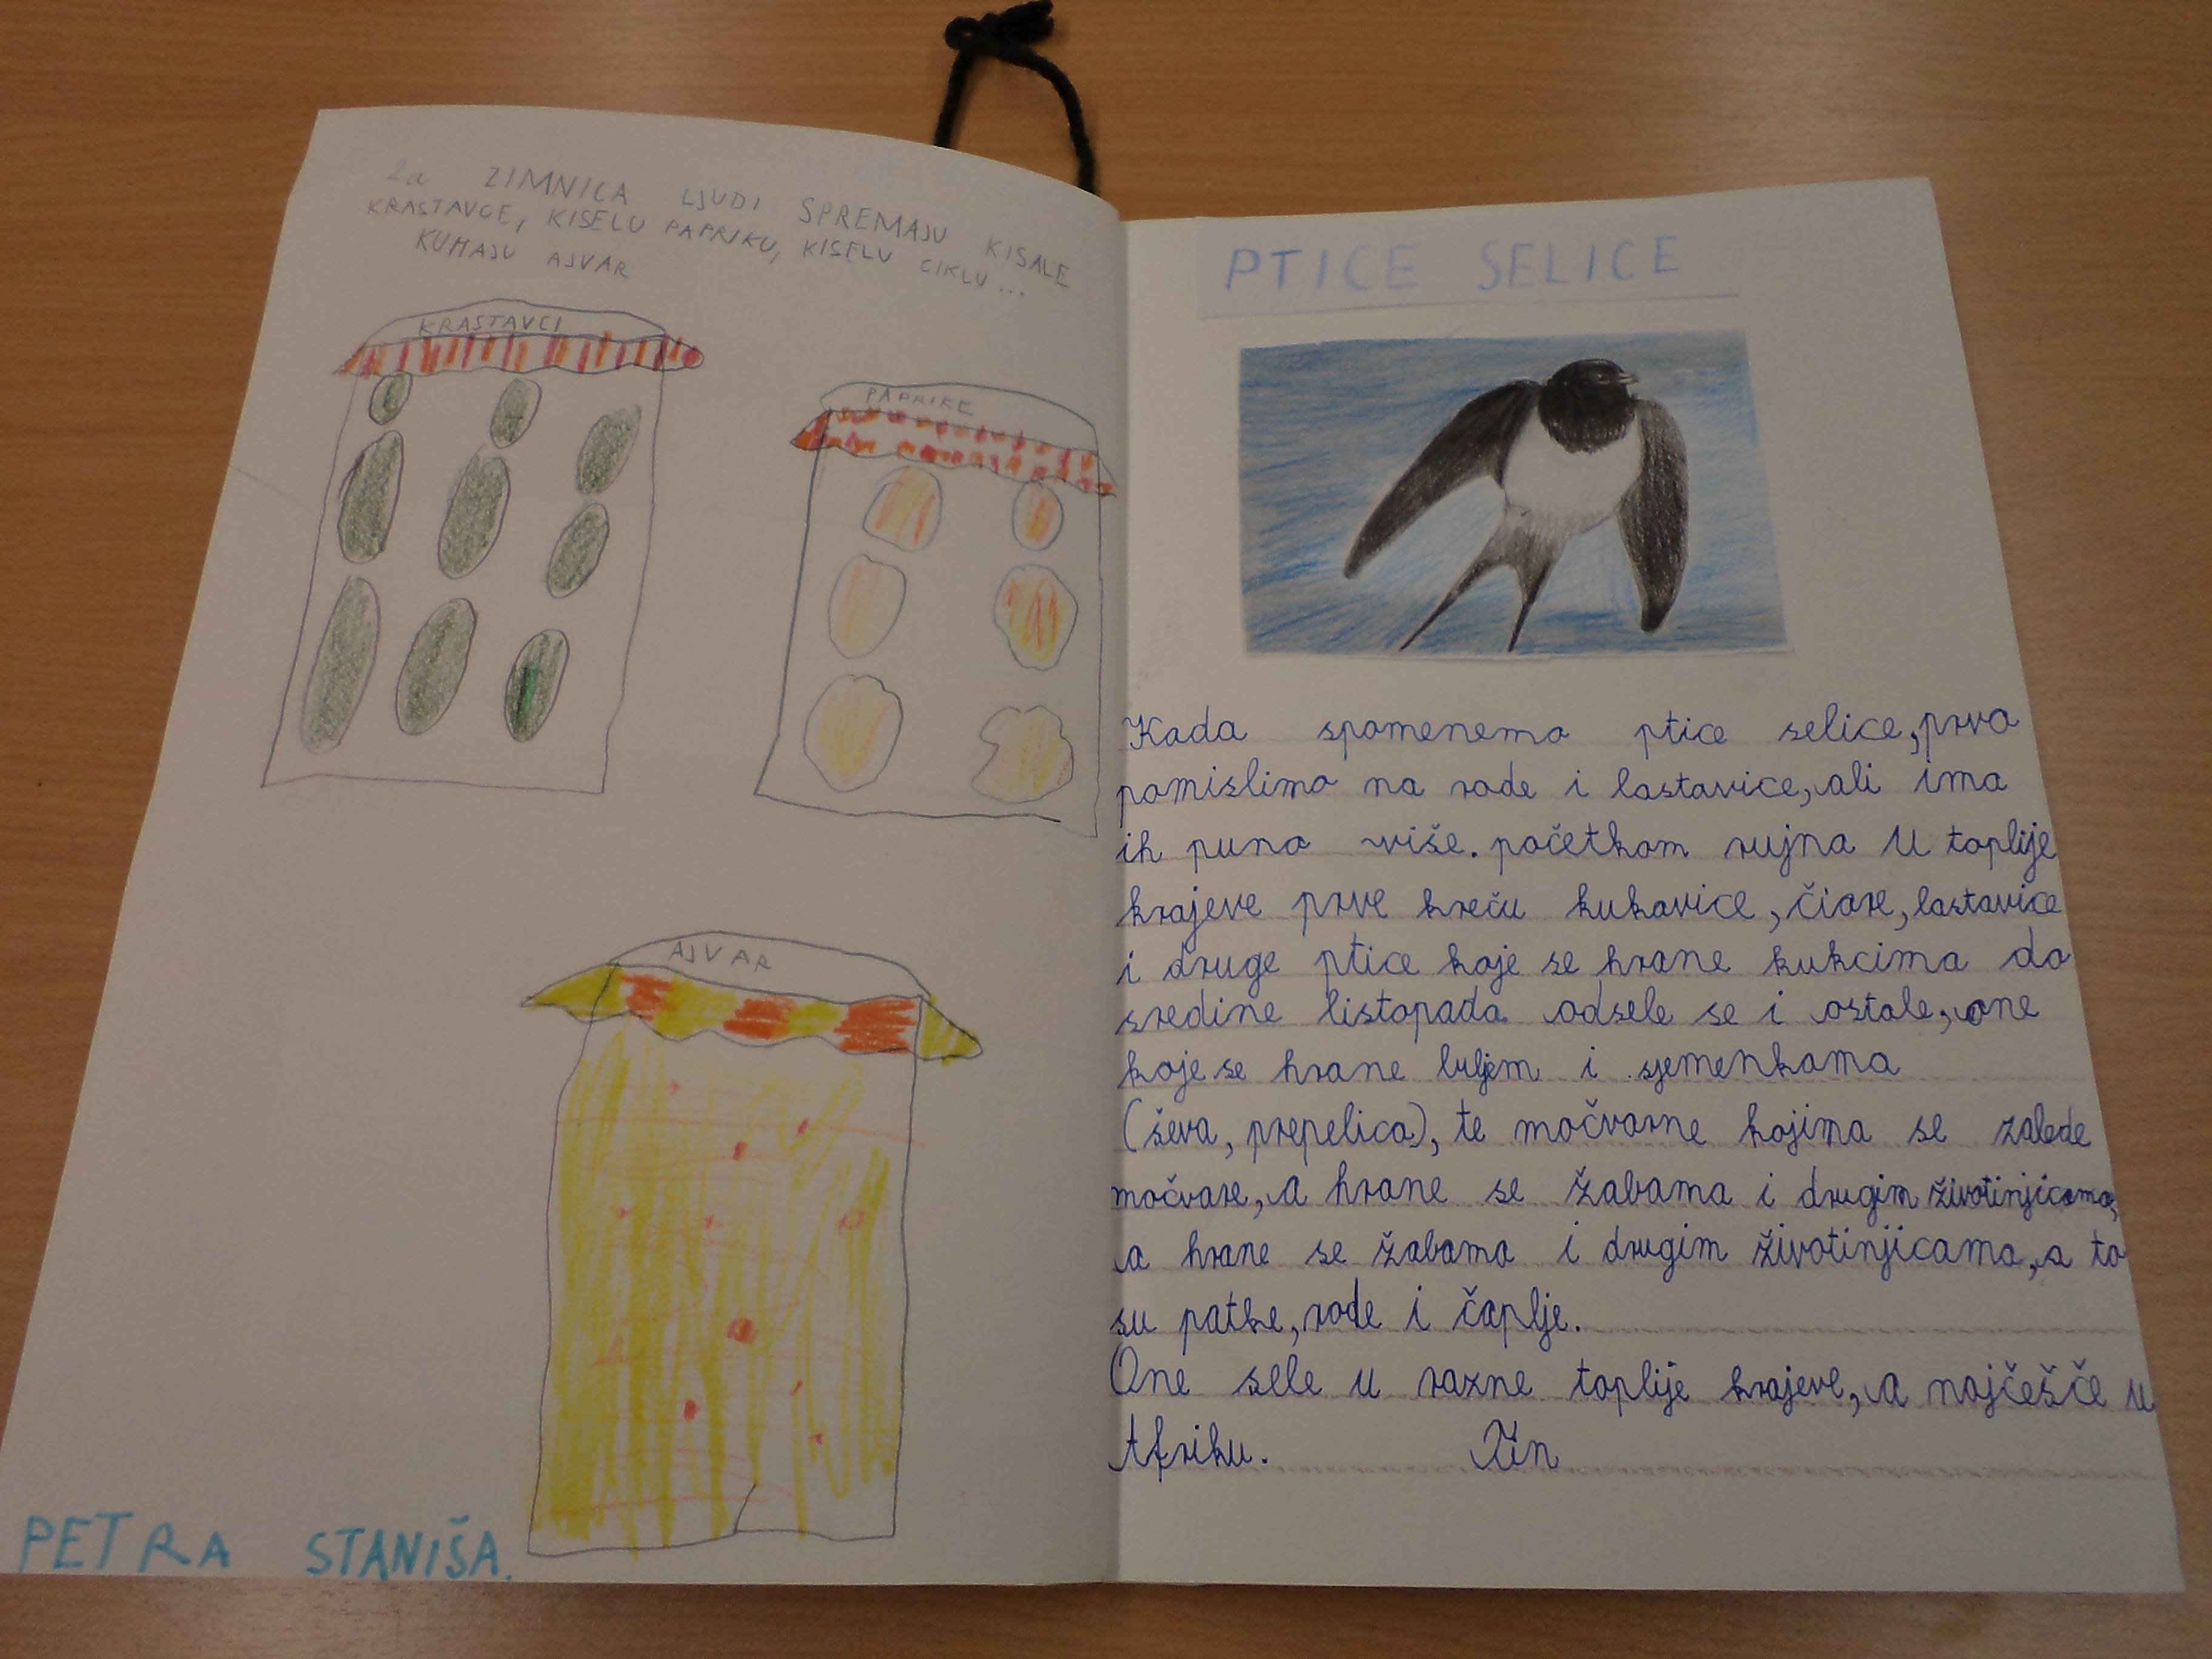 Za ZIMNICA LJUDI SPREMAJU KISALE
KRASTAVCE, KISELU PAPRIKU, KISELU CIKLU ...
KUHAJU AJVAR
KRASTAVCI
PAPRIKE
AJVAR
PETRA STANIŠA.
PTICE SELICE
Kada spomenemo ptice selice, prvo
pomislimo na rode i lastavice, ali ima
ih puno više. početkom rujna U toplije
krajeve prve kreču kukavice, čiore, lastavice
i druge ptice koje se hrane kukcima do
sredine listopada odsele se i ostale, one
koje se hrane biljem i sjemenkama
(ševa, prepelica), te močvarne kojima se zalede
močvare, a hrane se žabama i drugim životinjicama,
a hrane se žabama i drugim životinjicama, a to
su patke, rode i čaplje.
One sele u razne toplije krajeve, a najčešče u
Afriku.